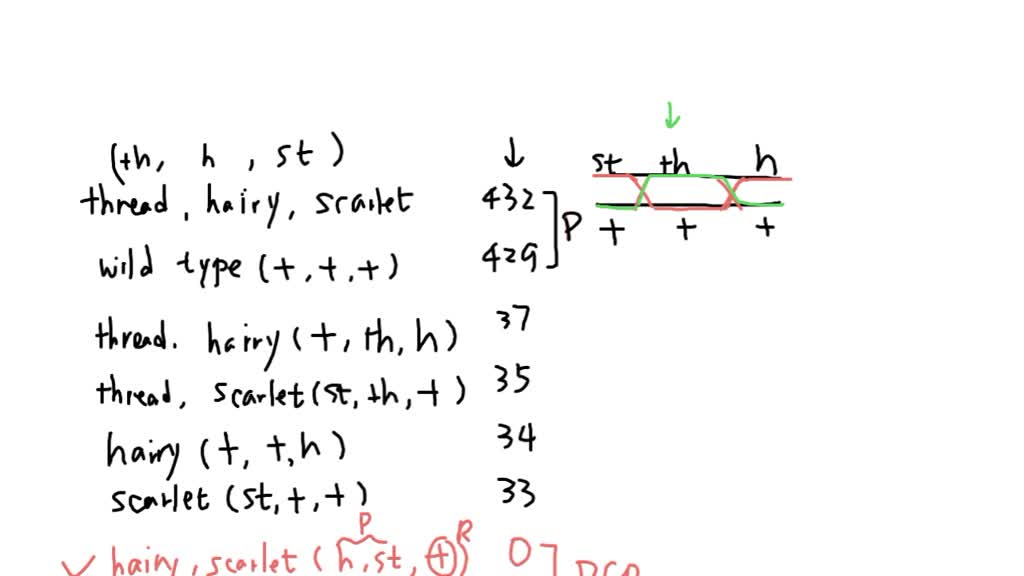 (th, h, st) ↓
thread, hairy, scarlet 432
wild type (+,+,+) 429
P
thread. hairy (+, th, h) 37
thread, scarlet (st, th, +) 35
hairy (+, +, h) 34
scarlet (st, +, +) 33
P R
✓ hairy, scarlet (h, st, +) 0
↓
st th h
+ + +